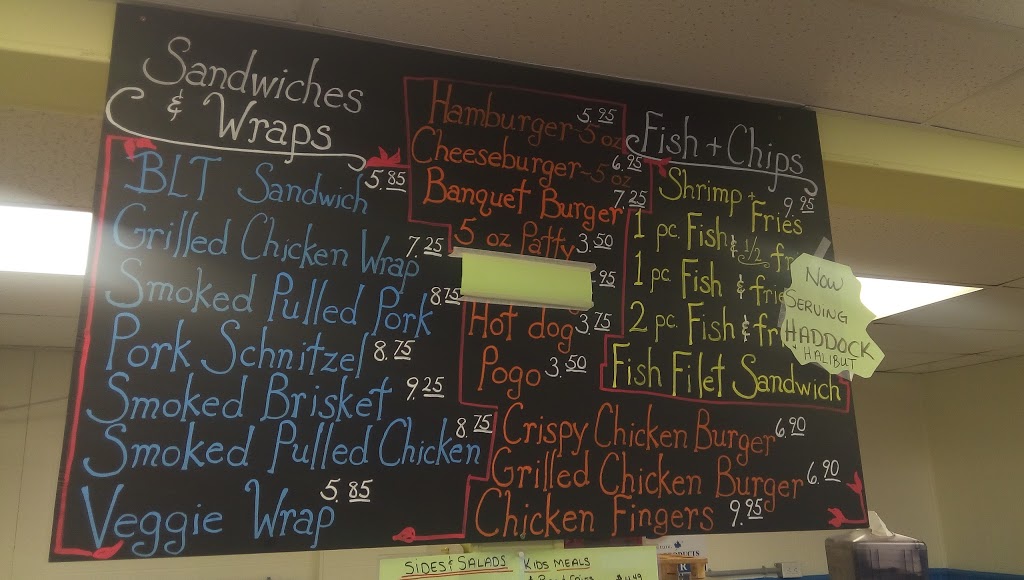 Sandwiches
& Wraps
BLT Sandwich 5.85
Grilled Chicken Wrap 7.25
Smoked Pulled Pork 8.75
Pork Schnitzel 8.75
Smoked Brisket 9.25
Smoked Pulled Chicken 8.75
Veggie Wrap 5.85
Hamburger-5oz 5.95
Cheeseburger-5oz 6.95
Banquet Burger 7.25
5 oz Patty 3.50
.95
Hot dog 3.75
Pogo 3.50
Crispy Chicken Burger 6.90
Grilled Chicken Burger 6.90
Chicken Fingers 9.95
Fish + Chips
Shrimp +
Fries 9.95
1 pc. Fish & 1/2 fr
1 pc. Fish & frie
2 pc. Fish & fri
Fish Filet Sandwich
NOW
SERVING
HADDOCK
+ HALIBUT
SIDES & SALADS KIDS MEALS